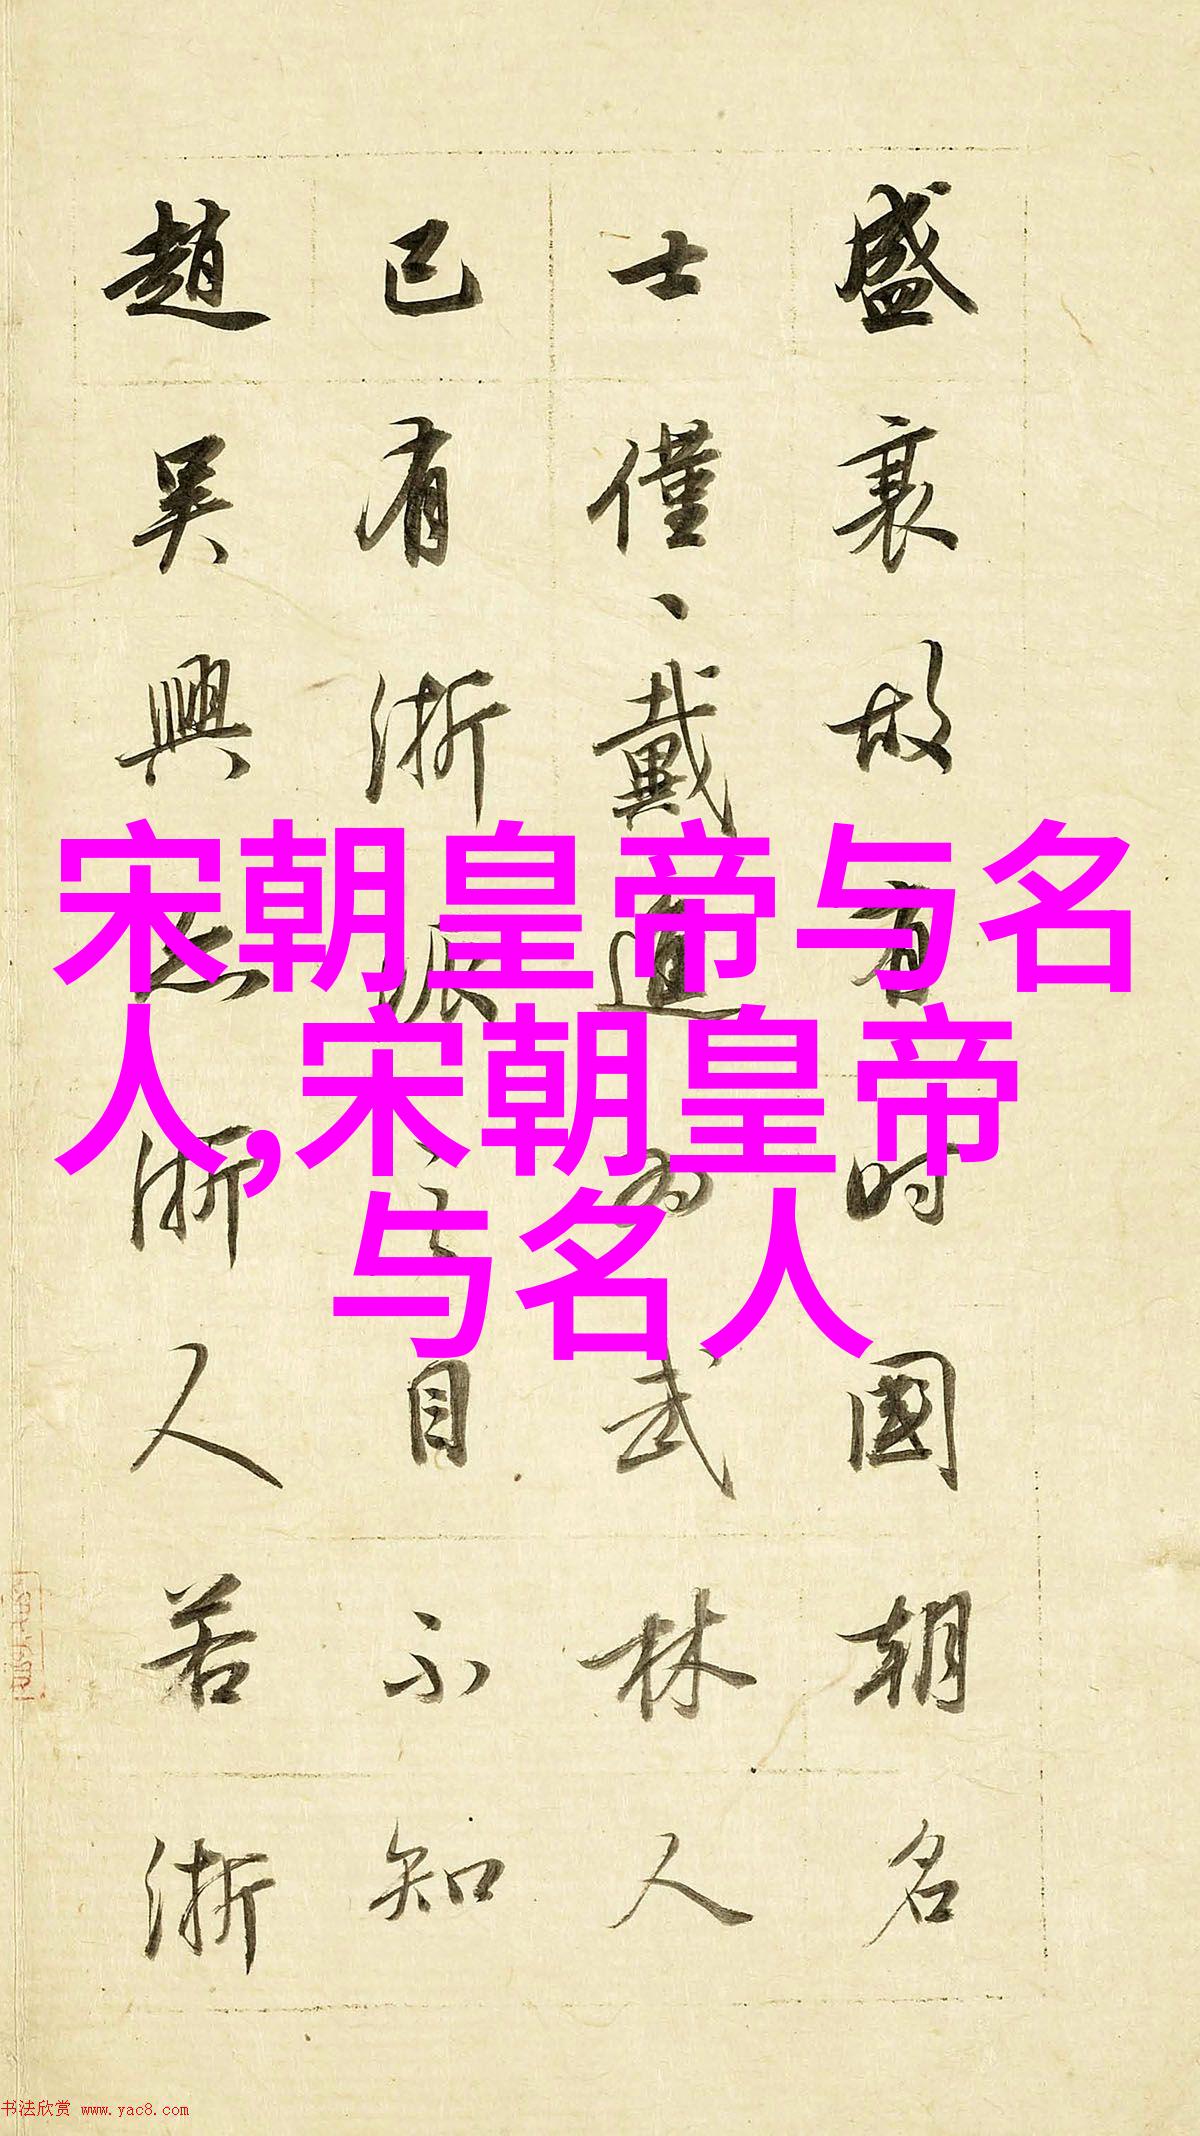 盛衰故有时國朝名
士僅、戴進为武林人
已有浙派之目不知
趙吴興亦浙人若浙
宋朝皇帝与名
人,宋朝皇帝
与名人
书法欣赏 www.yac8.com